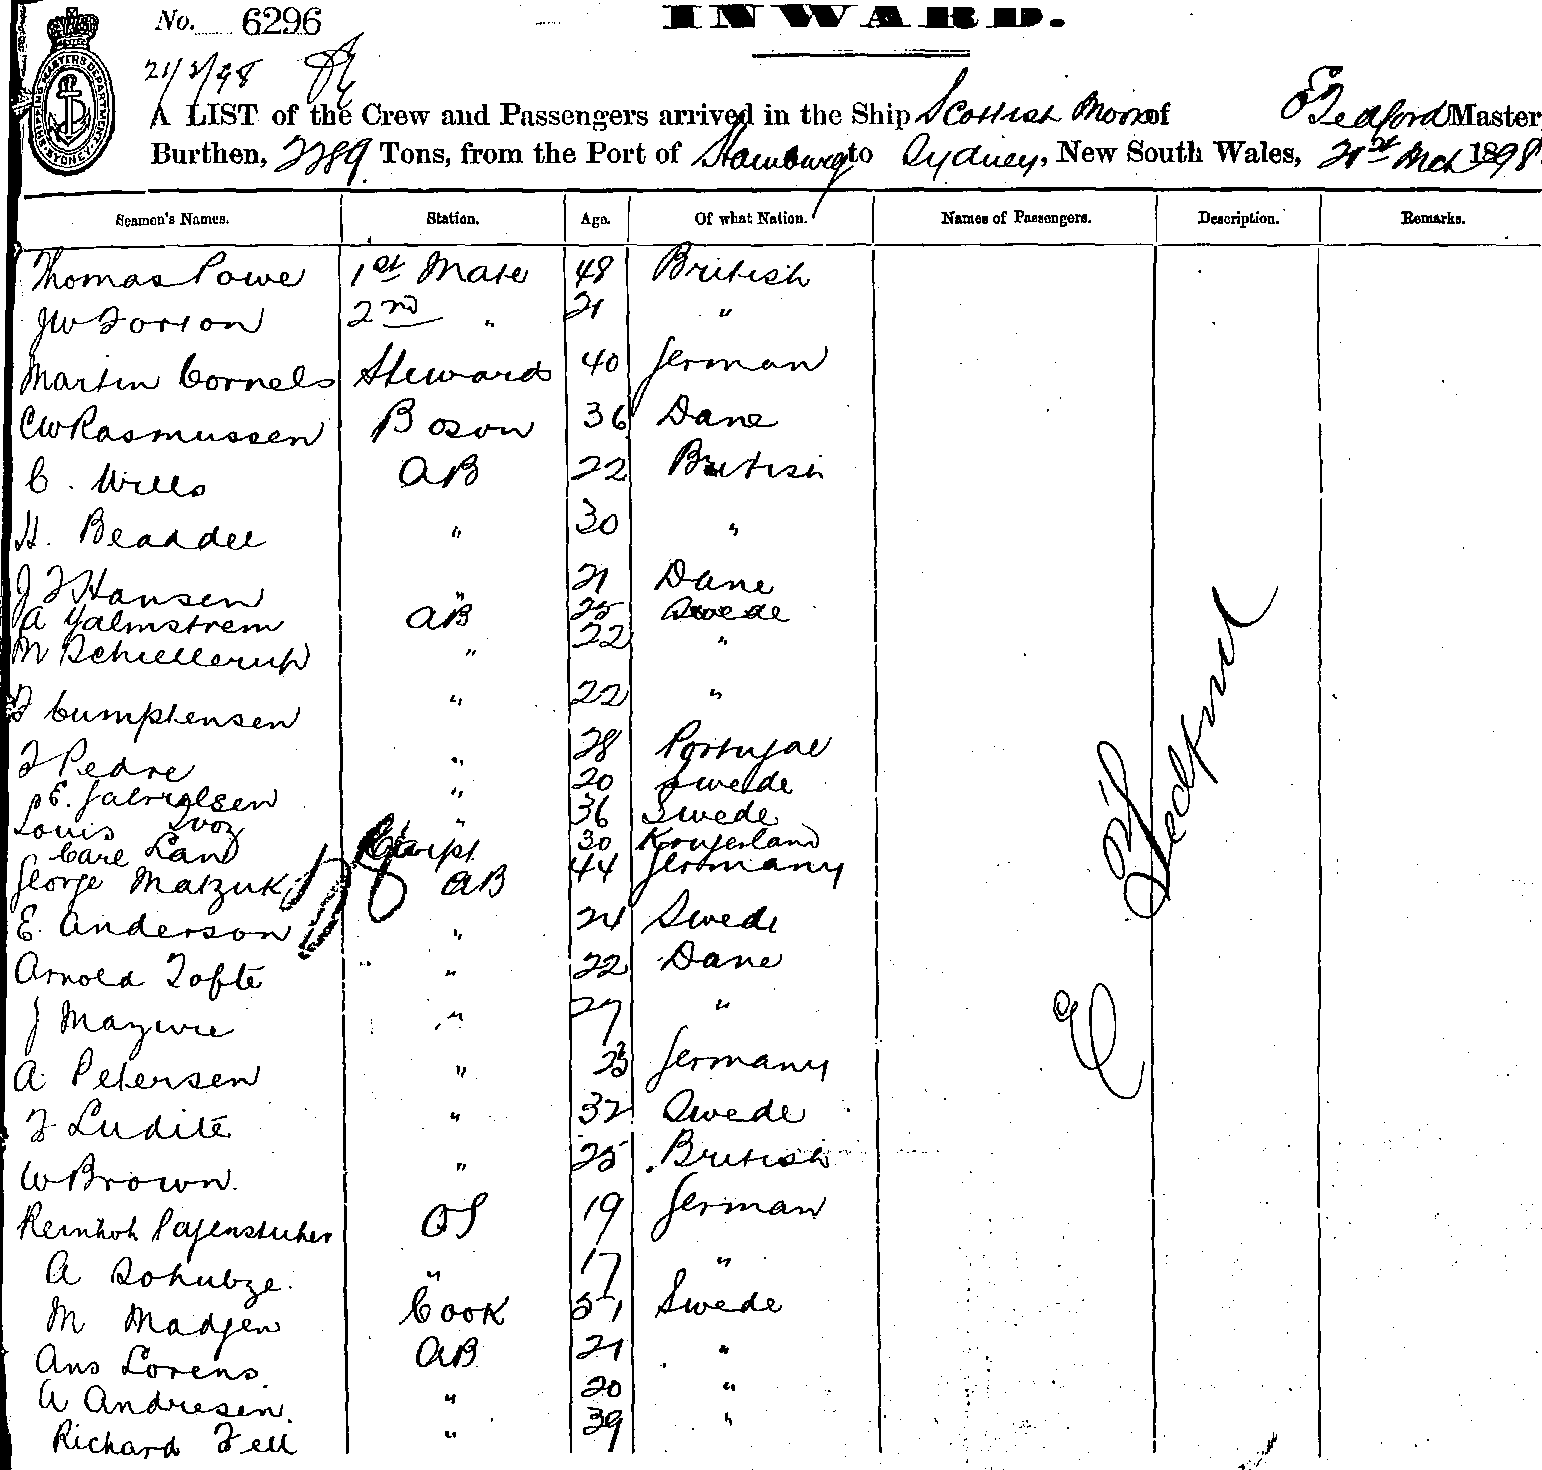 No. 6296
INWARD.
SHIPPING MASTERS DEPARTMENT SYDNEY
21/3/98
A LIST of the Crew and Passengers arrived in the Ship Scottish Moors of E Tedford Master
Burthen, 2289 Tons, from the Port of Hamburg to Sydney, New South Wales, 21st Mch 1898
Seamen's Names. Station. Age. Of what Nation. Names of Passengers. Description. Remarks.
Thomas Powe 1st Mate 48 British
JW Forton 2nd " 21 "
Martin Cornels Stewards 40 German
CW Rasmussen Boson 36 Dane
C. Wills AB 22 British
H. Beaddel " 30 "
J F Hansen " 21 Dane
A Yalmstrem AB 25 Swede
M Schiellerup " 22 "
F Cumptensen " 22 "
F Pedre " 28 Portugal
P E. Gabrielsen " 20 Swede
Louis " 36 Swede
Care Land Carpt 30
George Matzuk AB 44 Germany
E. Anderson " 24 Swede
Arnold Tofte " 22 Dane
J Mazwie " 27 "
A Petersen " 23 Germany
F Ludite " 32 Swede
W Brown. " 25 British
Reinhoh Pagenstuher OS 19 German
A Schubze. " 17 "
M Madjen Cook 51 Swede
Ans Lorens. AB 21 "
A Andresen. " 20 "
Richard Fell " 39 "
E Tedford